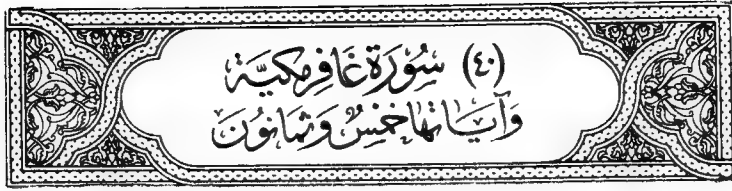 (٤٠) سُورَة غَافِر مَكِيَّة
وَآيَاتهَا خَمْسٌ وَثَمَانُونَ